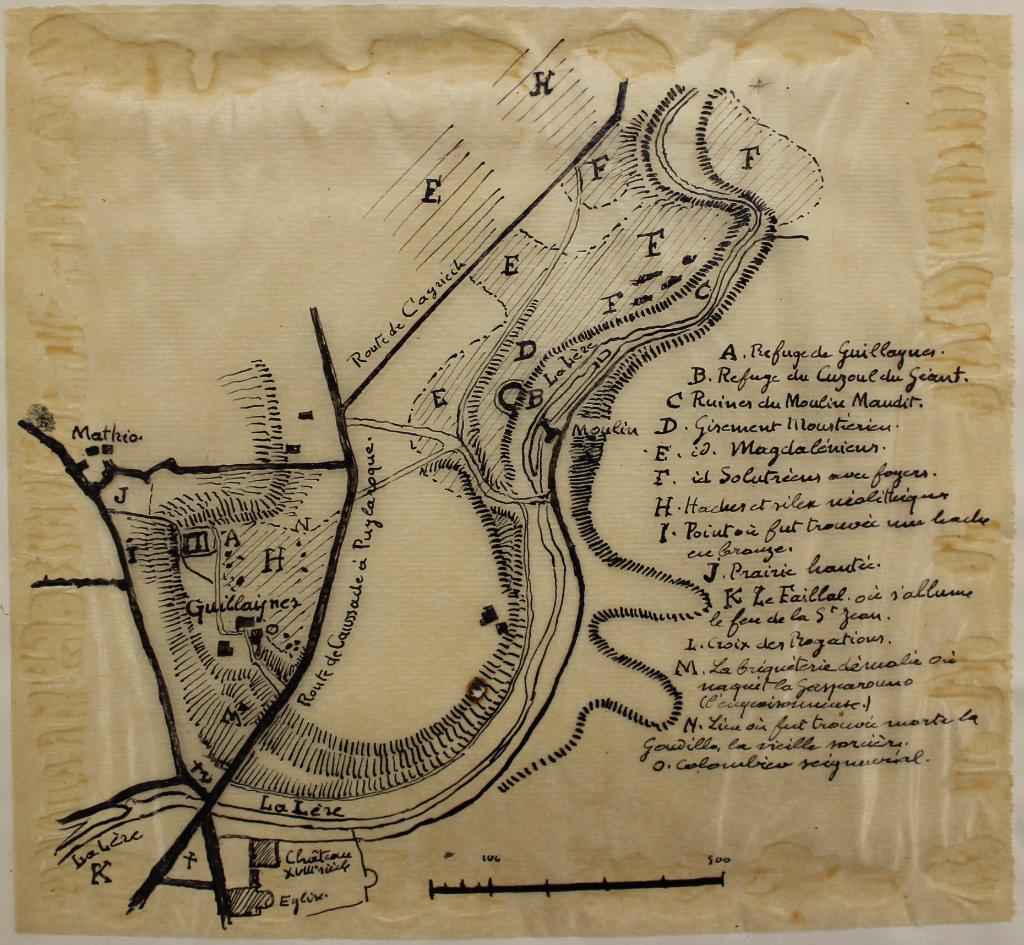 H
F
F
E
F
E
Route de Cayriech
F
C
D
La Lère
E
B
Moulin
A. Refuge de Guillaynes.
B. Refuge du Cuzoul du Géant.
C Ruines du Moulin Maudit.
D. Gisement Moustérien.
E. id. Magdaléniens.
F. id Solutréens avec foyers.
H. Haches et silex néolithiques
I. Point où fut trouvée une hache
en bronze.
J. Prairie hantée.
K Le Faillal. où s'allume
le feu de la St Jean.
L. Croix des Rogations.
M. La briquèterie démolie où
naquit la Gasparouno
(l'empoisonneuse.)
N. Lieu où fut trouvée morte la
Goudillo, la vieille sorcière.
O. Colombier seigneurial.
Mathio
J
I
A
N
H
Guillaynes
O
Route de Caussade à Puylaroque.
La Lère
La Lère
K
Château
XVIIIe siècle
Eglise.
100
500